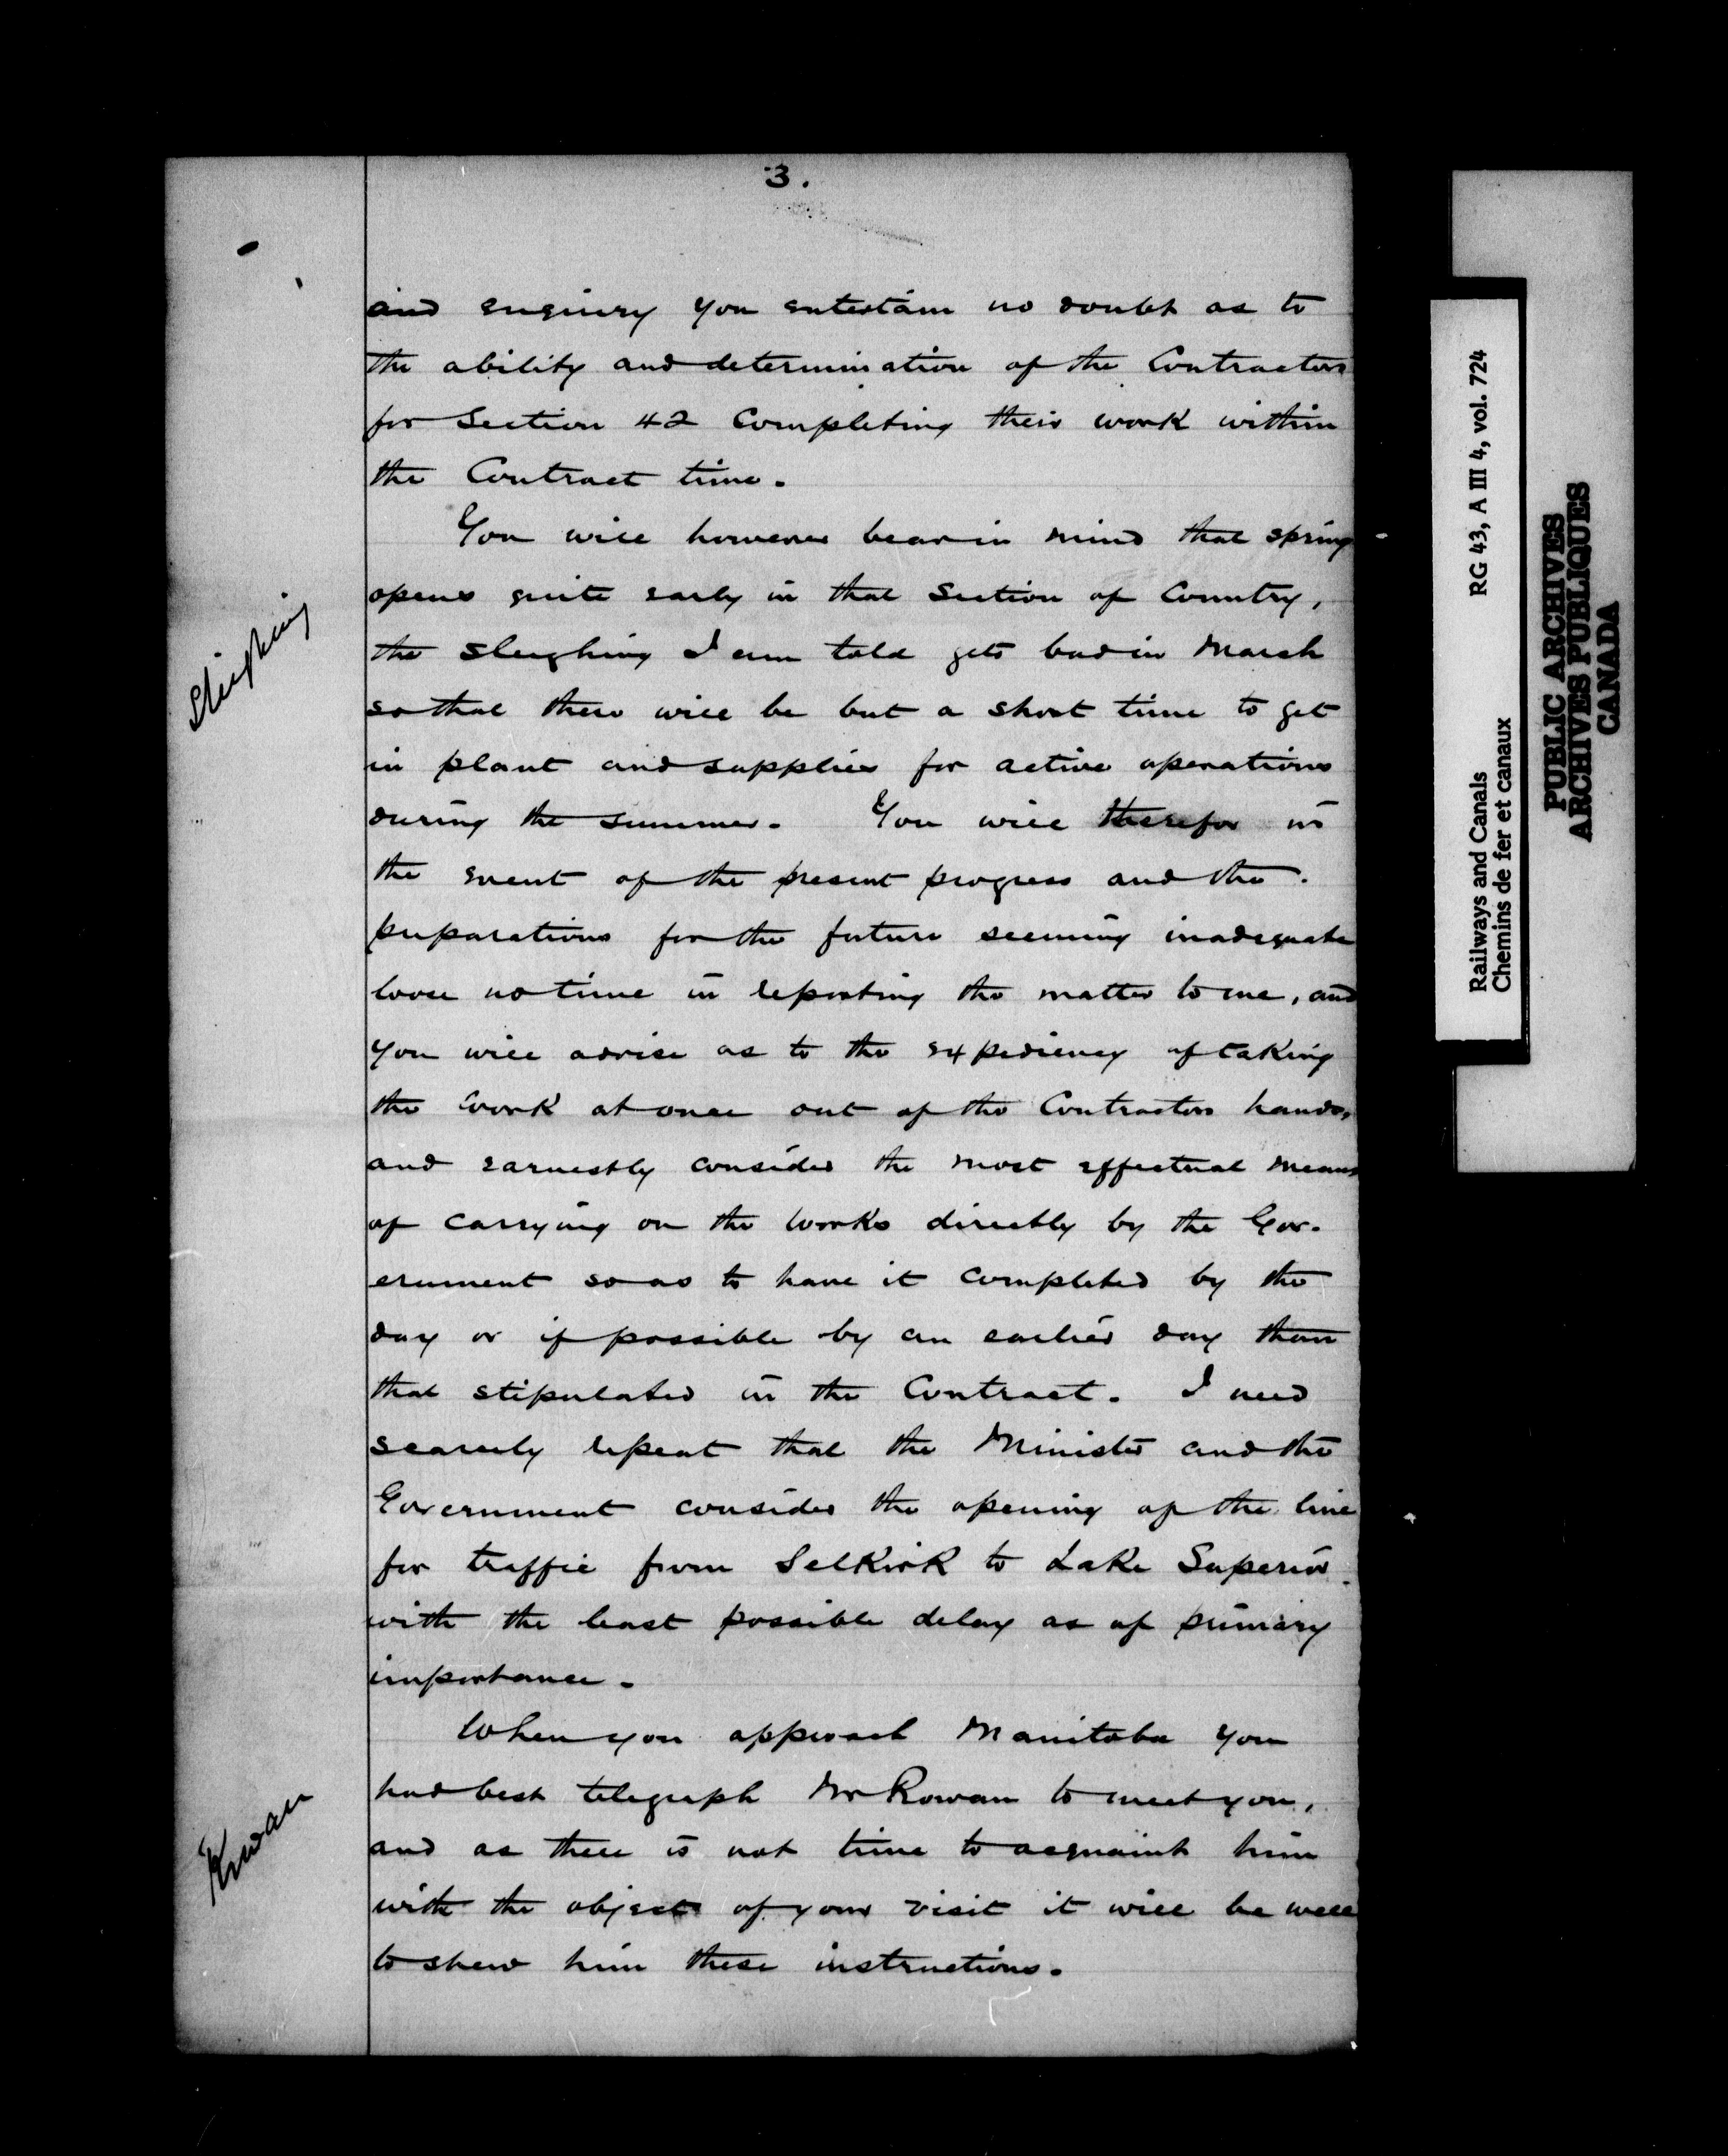 3.
and enquiry you entertain no doubt as to
the ability and determination of the Contractors
for Section 42 Completing their work within
the Contract time.
You will however bear in mind that spring
opens quite early in that Section of Country,
the Sleighing I am told gets bad in March
so that there will be but a short time to get
in plant and supplies for active operations
during the summer. You will therefor in
the event of the present progress and the
preparations for the future seeming inadequate
loose no time in reporting the matter to me, and
you will advise as to the expediency of taking
the work at once out of the Contractors hands,
and earnestly consider the most effectual means
of carrying on the works directly by the Gov-
ernment so as to have it completed by the
day or if possible by an earlier day than
that stipulated in the Contract. I need
scarcely repeat that the Minister and the
Government consider the opening of the line
for traffic from Selkirk to Lake Superior
with the least possible delay as of primary
importance.
When you approach Manitoba you
had best telegraph Mr Rowan to meet you,
and as there is not time to acquaint him
with the object of your visit it will be well
to shew him these instructions.
Sleighing
Railways and Canals RG 43, A III 4, vol. 724
Chemins de fer et canaux
PUBLIC ARCHIVES
ARCHIVES PUBLIQUES
CANADA